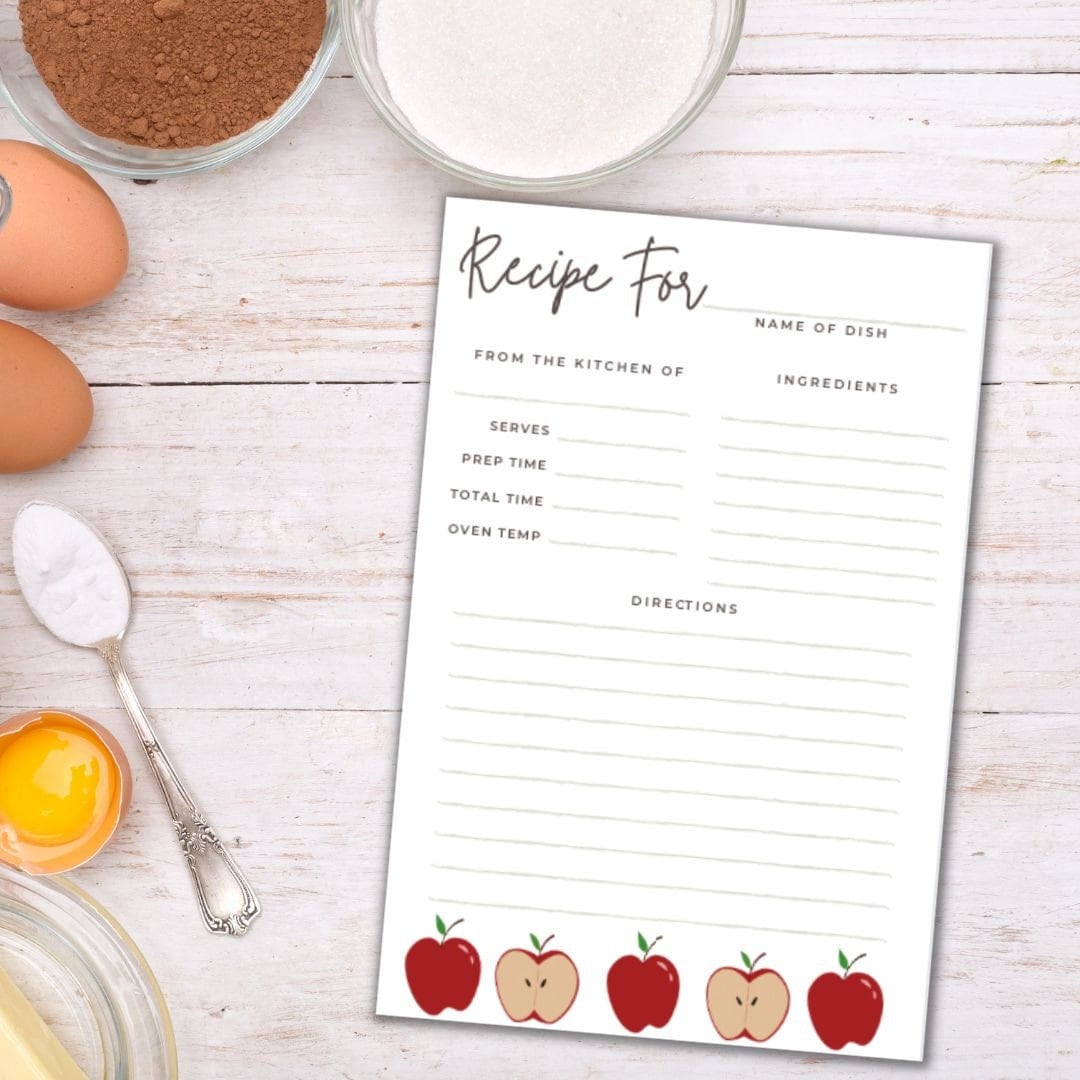 Recipe For
NAME OF DISH
FROM THE KITCHEN OF
INGREDIENTS
SERVES
PREP TIME
TOTAL TIME
OVEN TEMP
DIRECTIONS